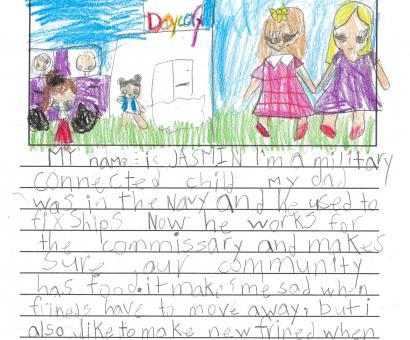 Daycare
MY name is JASMIN I'm a military
connected child my dad
was in the NAVY and he used to
fix ships Now he works for
the commissary and makes
sure our community
has food. it makes me sad when
frineds have to move away, but i
also like to make new frined when